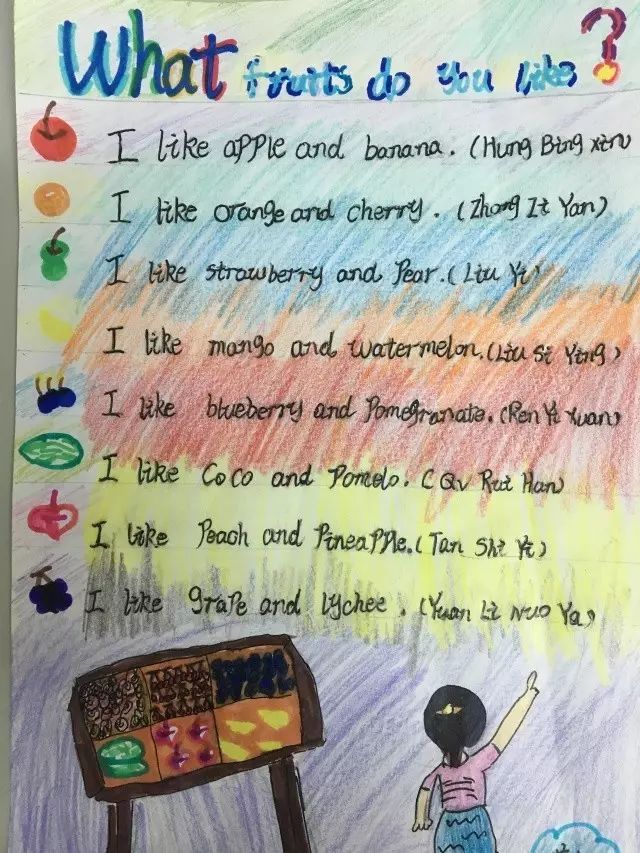 What fruits do you like?
I like apple and banana. (Hung Bing xin)
I like orange and cherry. (Zhang Zi Yan)
I like strawberry and Pear. (Liu Yi)
I like mango and watermelon. (Liu Si Ying)
I like blueberry and Pomegranate. (Ren Yi Xuan)
I like CoCo and Pomelo. (Qv Rui Han)
I like Peach and PineaPPle. (Tan Shi Yi)
I like graPe and lychee. (Yuan Li Nuo Ya)